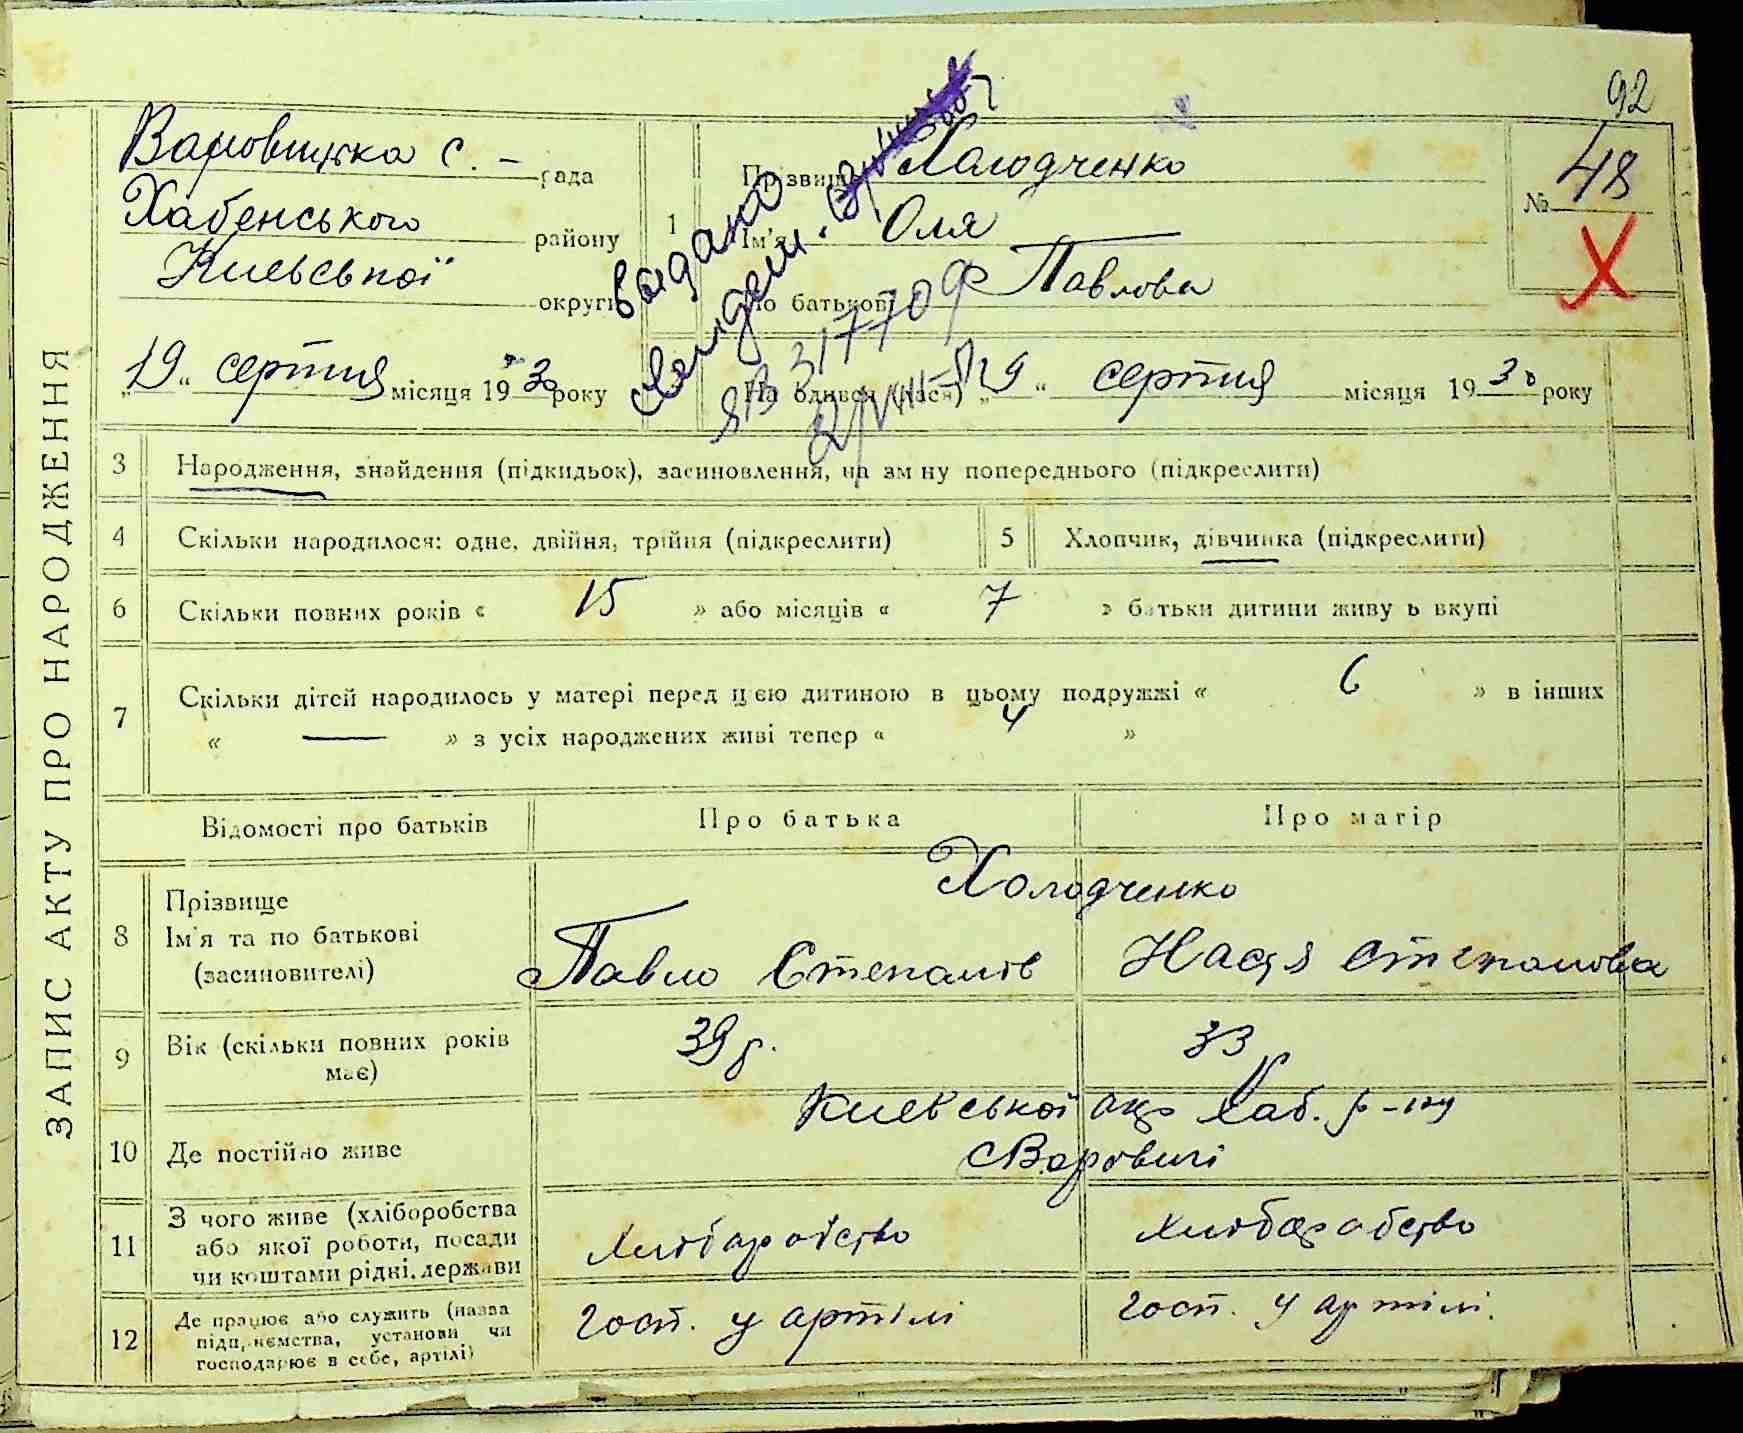 92
ЗАПИС АКТУ ПРО НАРОДЖЕННЯ
Варовицька с. - рада
Хабенського району
Киевської округи
"19" серпня місяця 1930 року
1 Прізвище Холодченко
Ім'я Оля
По батькові Павлова
№ 48
X
видано
свидет.
317709
На одився (лась) "19" серпня місяця 1930 року
3 Народження, знайдення (підкидьок), засиновлення, на зм ну попереднього (підкреслити)
4 Скільки народилося: одне, двійня, трійня (підкреслити) 5 Хлопчик, дівчинка (підкреслити)
6 Скільки повних років « 15 » або місяців « 7 » батьки дитини живу ь вкупі
7 Скільки дітей народилось у матері перед цією дитиною в цьому подружжі « 6 » в інших
« — » з усіх народжених живі тепер « 4 »
Відомості про батьків Про батька Про матір
8 Прізвище Холодченко
Ім'я та по батькові (засиновителі) Павло Степанів Настя Степанова
9 Вік (скільки повних років має) 39 р. 33 р
10 Де постійно живе Киевської окр Хаб. р-ну
с Варовичі
11 З чого живе (хліборобства або якої роботи, посади чи коштами рідні, держави Хліборобство Хліборобство
12 Де працює або служить (назва підприємства, установи чи господарює в себе, артілі) госп. у артілі госп. у артілі.